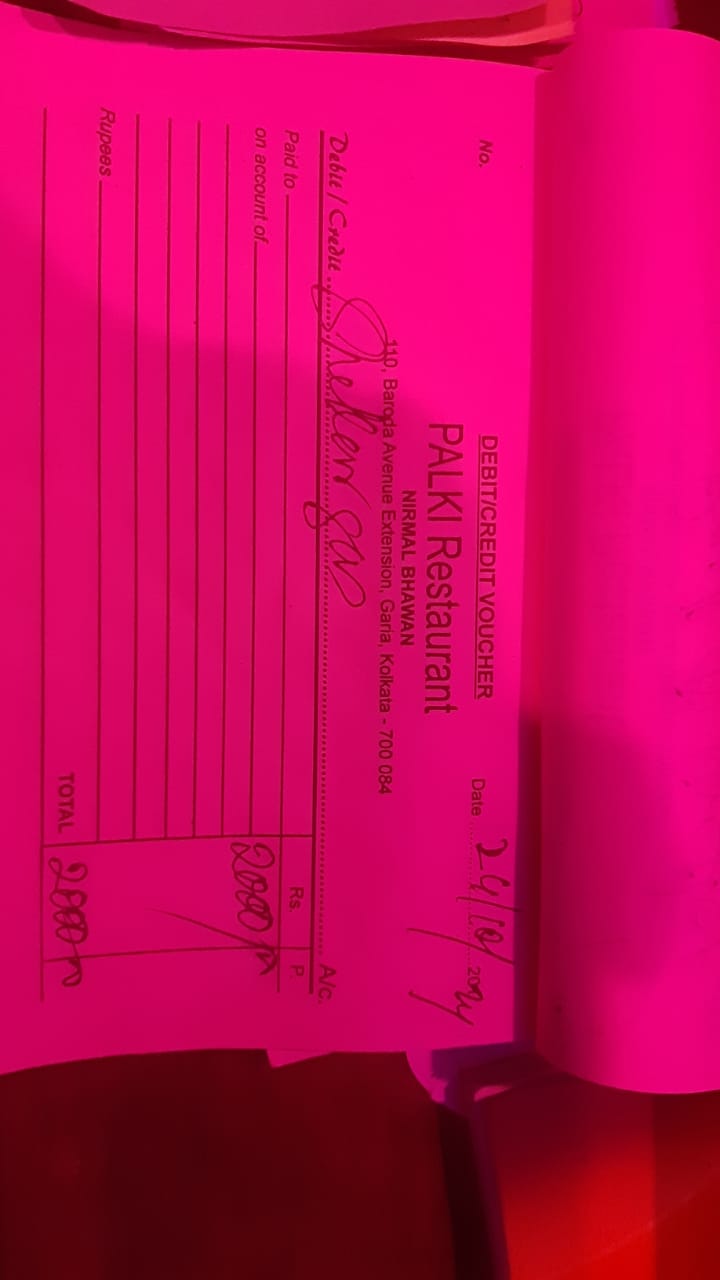 DEBIT/CREDIT VOUCHER
No. Date 24/10/2024
PALKI Restaurant
NIRMAL BHAWAN
110, Baroda Avenue Extension, Garia, Kolkata - 700 084
Debit / Credit A/c.
Paid to Rs. P.
on account of 2000/-
Rupees
TOTAL 2000/-